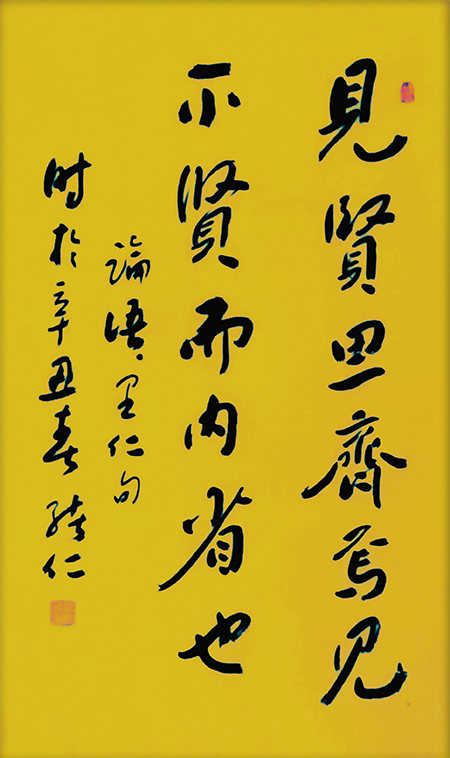 見賢思齊焉见
不賢而内省也
論語里仁句
时於辛丑春 仁